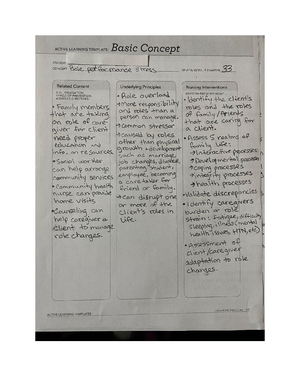 ACTIVE LEARNING TEMPLATE: Basic Concept
Role performance stress
REVIEW MODULE CHAPTER 33
Related Content
• Family members
that are taking
on role of care-
giver for client
need proper
education and
info. on resources
• Social worker
can help arrange
community services
• Community health
nurse can provide
home visits
• Counseling can
help caregiver &
client to manage
role changes.
Underlying Principles
• Role overload
• More responsibility
and roles than a
person can manage.
• Common stressor
• Caused by roles
other than physical
growth & development
such as marriage,
job changes, divorce,
parenting,
employee, becoming
a caretaker for
friend or family.
• Can disrupt one
or more of the
client's roles in
life.
Nursing Interventions
• Identify the client's
roles and the roles
of family/friends
that are caring for
a client.
• Assess 5 realms of
family life:
→ Interactive processes
→ Developmental processes
→ Coping processes
→ Integrity processes
→ health processes
• Validate discrepancies
• Identify caregivers
burden or role
strain: fatigue, difficulty
sleeping, illness (mental
health issues, HTN, etc)
• Assessment of
client/caregiver
adaptation to role
changes.
ACTIVE LEARNING TEMPLATES